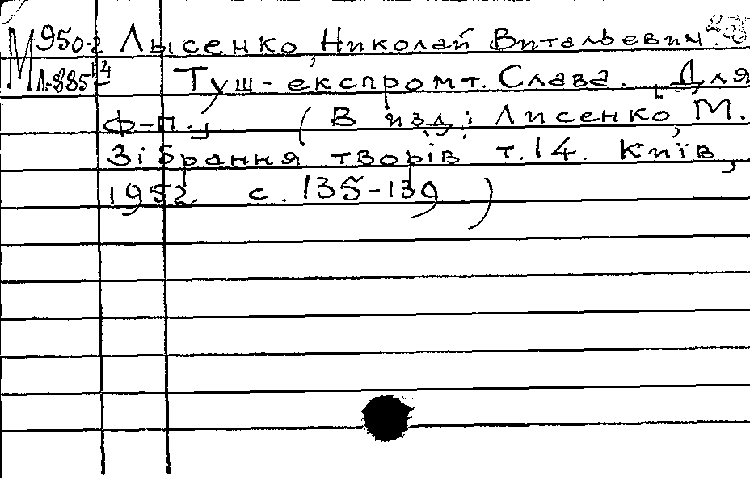 М 950-2 Лысенко, Николай Витальевич
Л-885 4 Туш-експромт. Слава. Для
ф-п. (В изд.: Лисенко, М.
Зібрання творів т.14. Київ,
1952. с. 135-139)